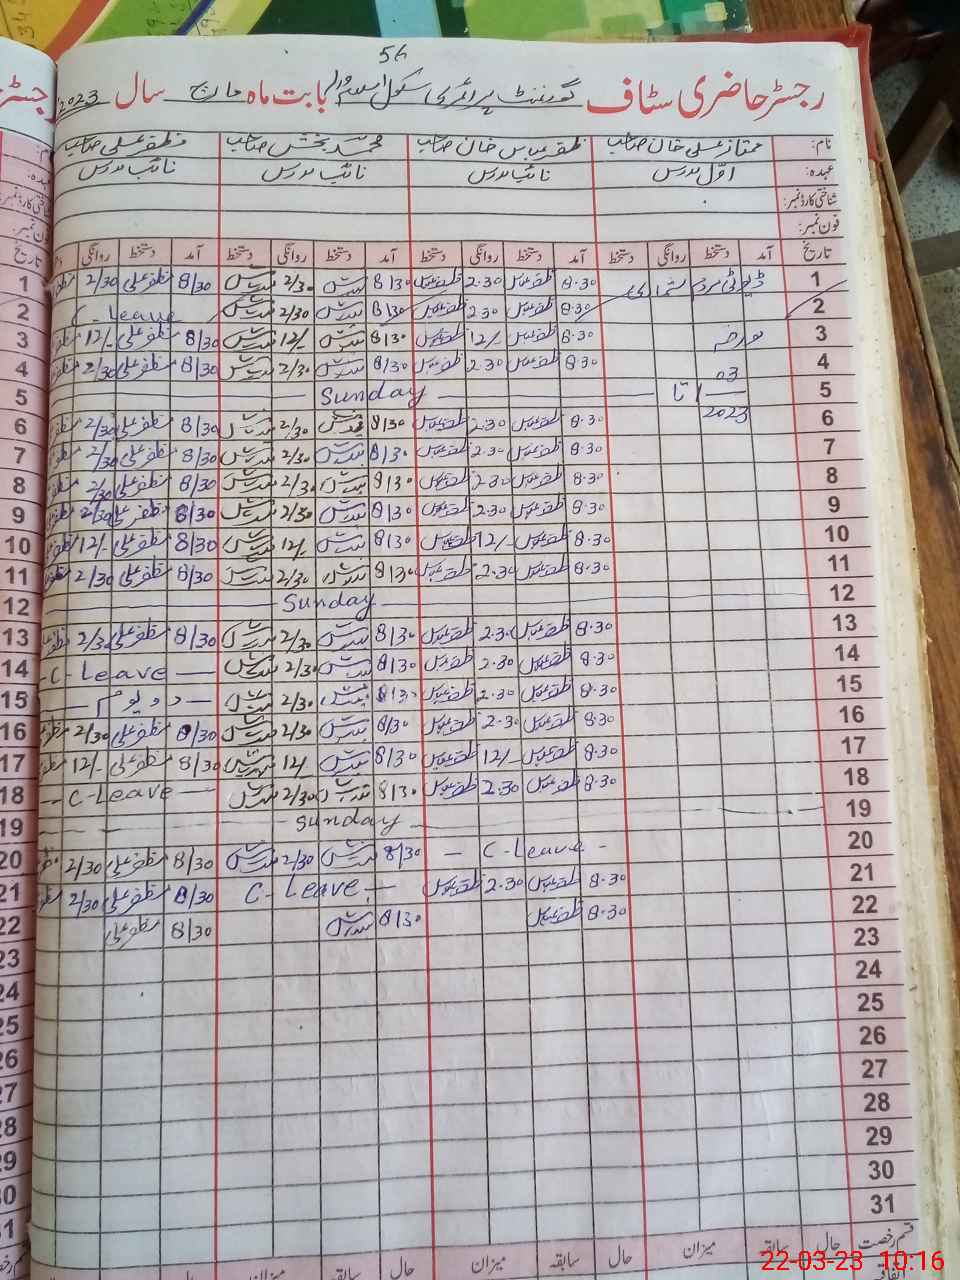 56
رجسٹر حاضری سٹاف گورنمنٹ پرائمری سکول بابت ماہ مارچ سال 2023
نام: ممتاز علی خان صاحب ظفر عباس خان صاحب محمد بخش صاحب مظفر علی صاحب
عہدہ: اوّل مدرس نائب مدرس نائب مدرس نائب مدرس
شناختی کارڈ نمبر:
فون نمبر:
تاریخ آمد دستخط روانگی دستخط آمد دستخط روانگی دستخط آمد دستخط روانگی دستخط آمد دستخط روانگی
1 ڈیوٹی مردم شماری 8.30 ظفر عباس 2.30 ظفر عباس 8/30 2/30 8/30 مظفر علی 2/30
2 8.30 ظفر عباس 2.30 ظفر عباس 8/30 2/30 C-Leave
3 مورخہ 8.30 ظفر عباس 12/- ظفر عباس 8/30 12/- 8/30 مظفر علی 12/-
4 03 8.30 ظفر عباس 2.30 ظفر عباس 8/30 2/30 8/30 مظفر علی 2/30
5 1 تا Sunday
6 2023 8.30 ظفر عباس 2.30 ظفر عباس 8/30 2/30 8/30 مظفر علی 2/30
7 8.30 ظفر عباس 2.30 ظفر عباس 8/30 2/30 8/30 مظفر علی 2/30
8 8.30 ظفر عباس 2.30 ظفر عباس 8/30 2/30 8/30 مظفر علی 2/30
9 8.30 ظفر عباس 2.30 ظفر عباس 8/30 2/30 8/30 مظفر علی 2/30
10 8.30 ظفر عباس 12/- ظفر عباس 8/30 12/- 8/30 مظفر علی 12/-
11 8.30 ظفر عباس 2.30 ظفر عباس 8/30 2/30 8/30 مظفر علی 2/30
12 Sunday
13 8.30 ظفر عباس 2.30 ظفر عباس 8/30 2/30 8/30 مظفر علی 2/30
14 8.30 ظفر عباس 2.30 ظفر عباس 8/30 2/30 C-Leave
15 8.30 ظفر عباس 2.30 ظفر عباس 8/30 2/30 دو یوم
16 8.30 ظفر عباس 2.30 ظفر عباس 8/30 2/30 8/30 مظفر علی 2/30
17 8.30 ظفر عباس 12/- ظفر عباس 8/30 12/ 8/30 مظفر علی 12/-
18 8.30 ظفر عباس 2.30 ظفر عباس 8/30 2/30 C-Leave
19 Sunday
20 C-Leave 8/30 2/30 8/30 مظفر علی 2/30
21 8.30 ظفر عباس 2.30 ظفر عباس C-Leave 8/30 مظفر علی 2/30
22 8.30 ظفر عباس 8/30 8/30 مظفر علی
23
24
25
26
27
28
29
30
31
قسم رخصت حال سابقہ میزان حال سابقہ میزان حال سابقہ میزان حال سابقہ
22-03-23 10:16